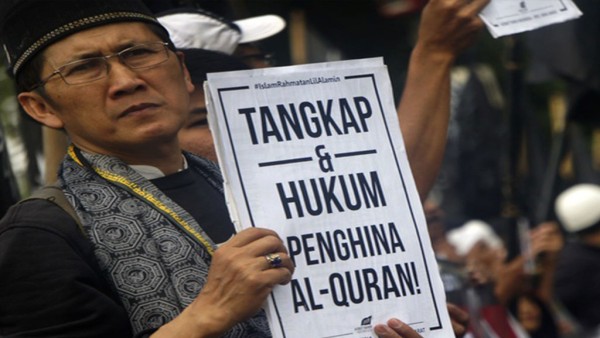 #IslamRahmatanLilAlamin
TANGKAP
&
HUKUM
PENGHINA
AL-QURAN!